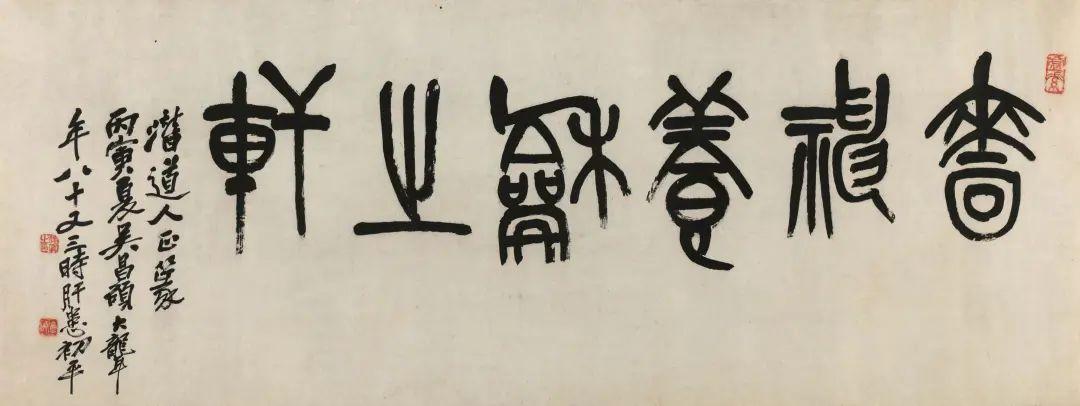 嗇神養龢之軒
潛道人正篆
丙寅夏吳昌碩大聾
年八十又三時肝恙初平